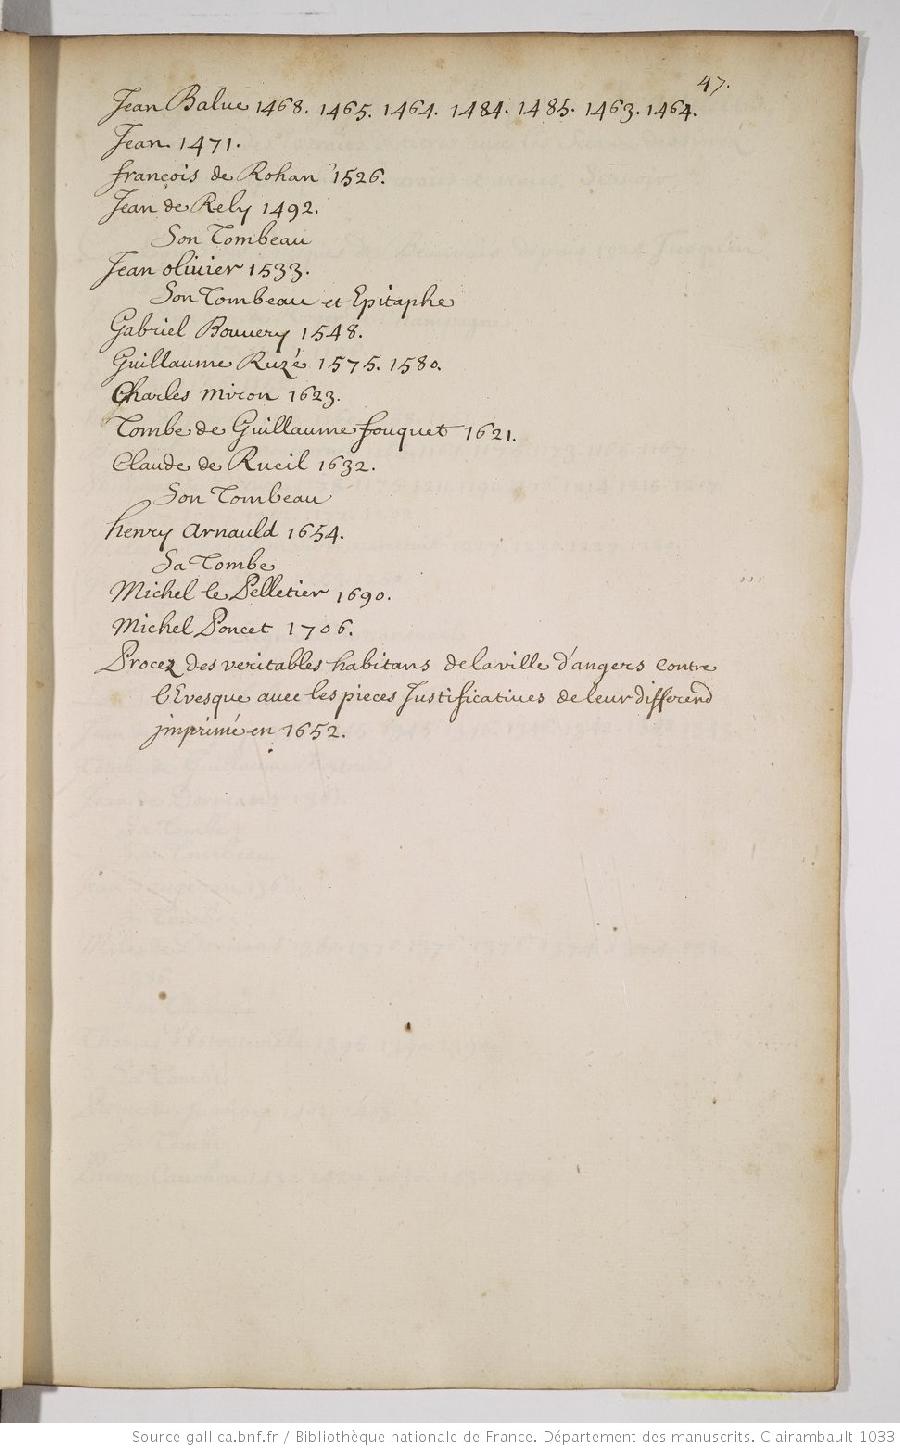 47.
Jean Balue 1468. 1465. 1464. 1484. 1485. 1463. 1464.
Jean 1471.
françois de Rohan 1526.
Jean de Rely 1492.
Son Tombeau
Jean olivier 1533.
Son Tombeau et Epitaphe
Gabriel Bouuery 1548.
Guillaume Ruzé 1575. 1580.
Charles miron 1623.
Tombe de Guillaume fouquet 1621.
Claude de Rueil 1632.
Son Tombeau
henry arnauld 1654.
Sa Tombe
Michel le Pelletier 1690.
Michel Poncet 1706.
Procez des veritables habitans de la ville d'angers contre
l'Evesque auec les pieces Justificatiues de leur differend
jmprimé en 1652.
Source gallica.bnf.fr / Bibliothèque nationale de France. Département des manuscrits. Clairambault 1033